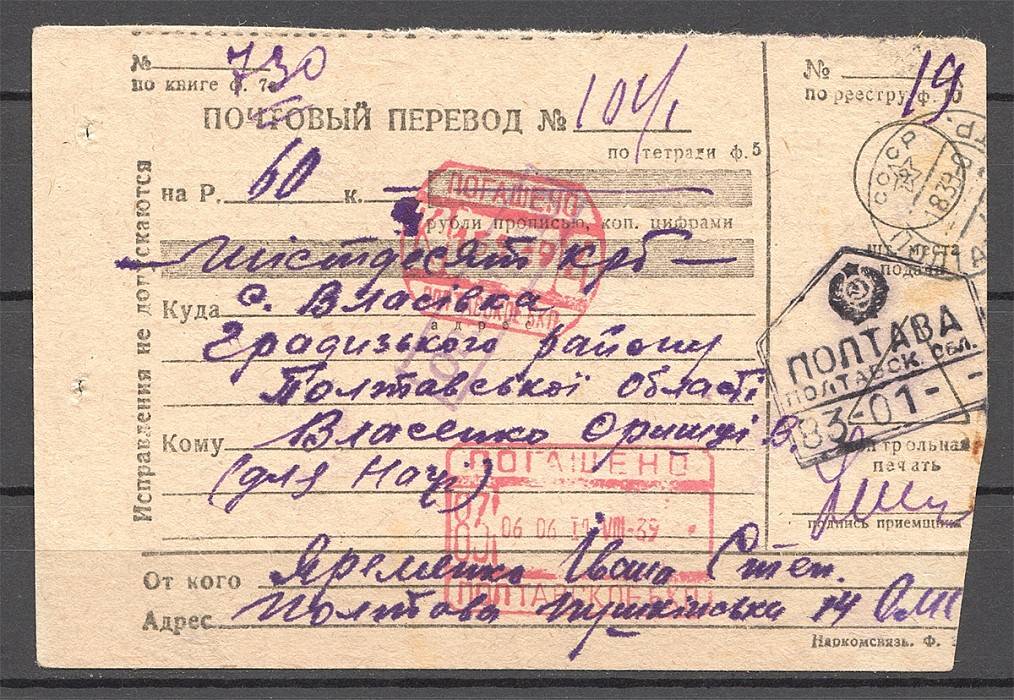 № 730
по книге ф. 7
ПОЧТОВЫЙ ПЕРЕВОД № 104/1
по тетради ф. 5
№ 19
по реестру ф. 10
на Р. 60 к. —
рубли прописью, коп. цифрами
— Шістдесят крб —
Куда с. Власівка
адрес
Градизького району
Полтавської області
Кому Власенко
(для Наці)
От кого Яременко Івана Степ.
Адрес Полтава Пушкінська 14
Наркомсвязь. Ф.
Исправления не допускаются
ПОГАШЕНО
ПОГАШЕНО
06 06 11 VIII-39
ПОЛТАВСКОЕ БКП
СССР
1839
места
подачи
ПОЛТАВА
ПОЛТАВСК. ОБЛ.
83-01-
контрольная
печать
подпись приемщика